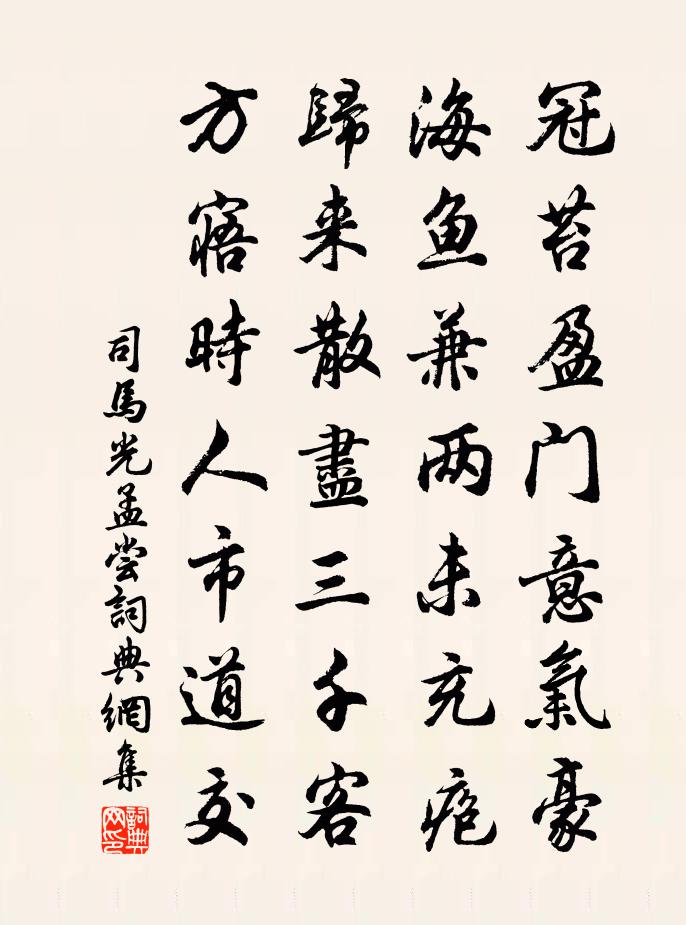 冠苔盈门意氣豪
海鱼兼两未充疱
歸来散盡三千客
方寤時人市道交
司馬光孟尝詞典網集
詞典网印